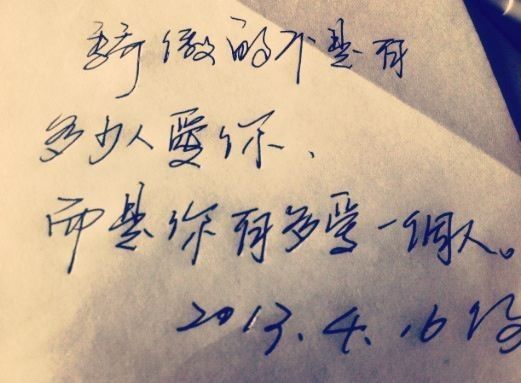 驕傲的不是有
多少人愛你、
而是你有多愛一個人。
2013.4.16